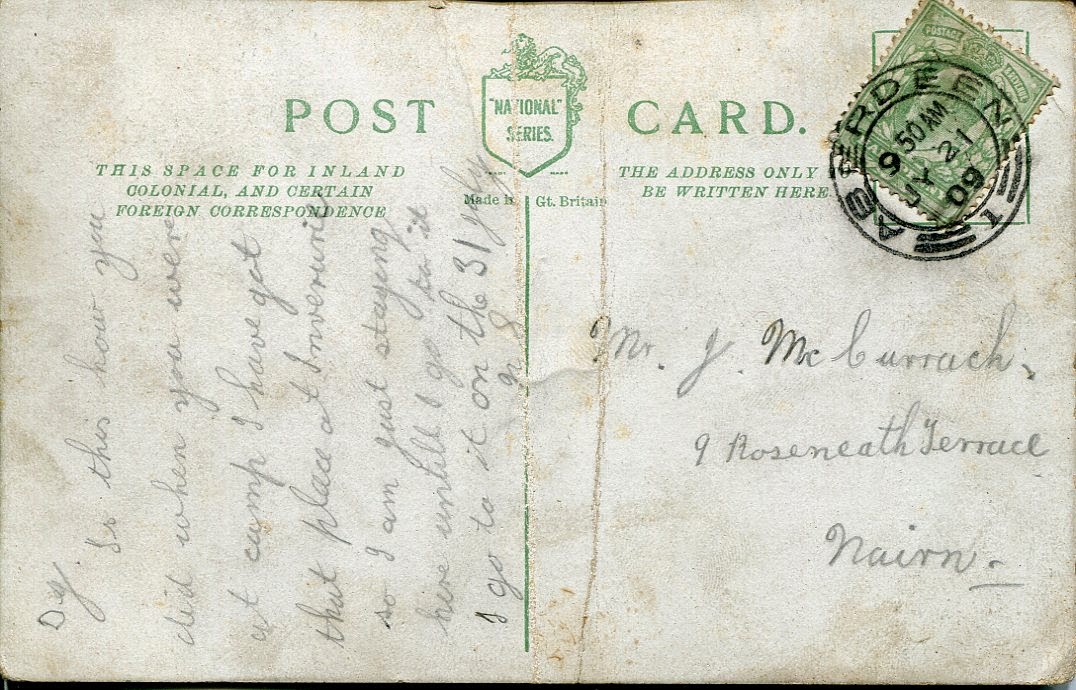 POST CARD.
"NATIONAL"
SERIES.
THIS SPACE FOR INLAND
COLONIAL, AND CERTAIN
FOREIGN CORRESPONDENCE
THE ADDRESS ONLY
BE WRITTEN HERE
Made in Gt. Britain
POSTAGE
ABERDEEN
9 50 AM
JY 21
09
1
Mr. J. McCurrach.
9 Roseneath Terrace
Nairn.
D J
Is this how you
did when you were
at camp I have got
that place at Inverurie
so I am just staying
here untill I go to it
I go to it on the 31 July